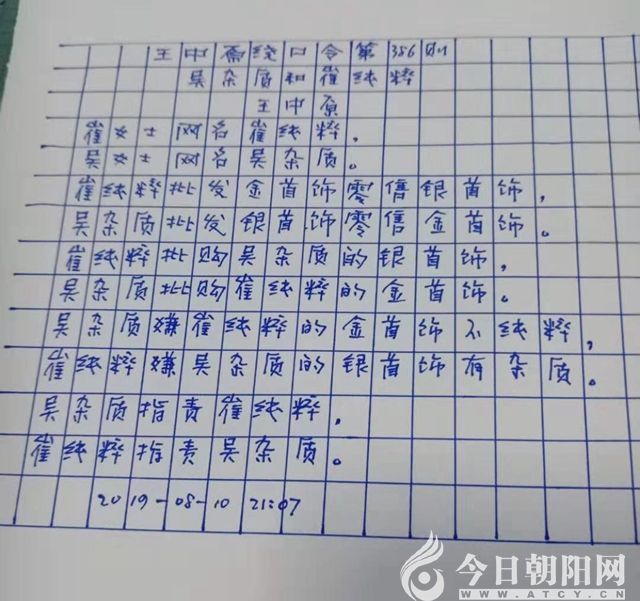 王中原绕口令第356则
吴杂质和崔纯粹
王中原
崔女士网名崔纯粹，
吴女士网名吴杂质。
崔纯粹批发金首饰零售银首饰，
吴杂质批发银首饰零售金首饰。
崔纯粹批购吴杂质的银首饰，
吴杂质批购崔纯粹的金首饰。
吴杂质嫌崔纯粹的金首饰不纯粹，
崔纯粹嫌吴杂质的银首饰有杂质。
吴杂质指责崔纯粹，
崔纯粹指责吴杂质。
2019-08-10 21:07
今日朝阳网
WWW.ATCY.CN